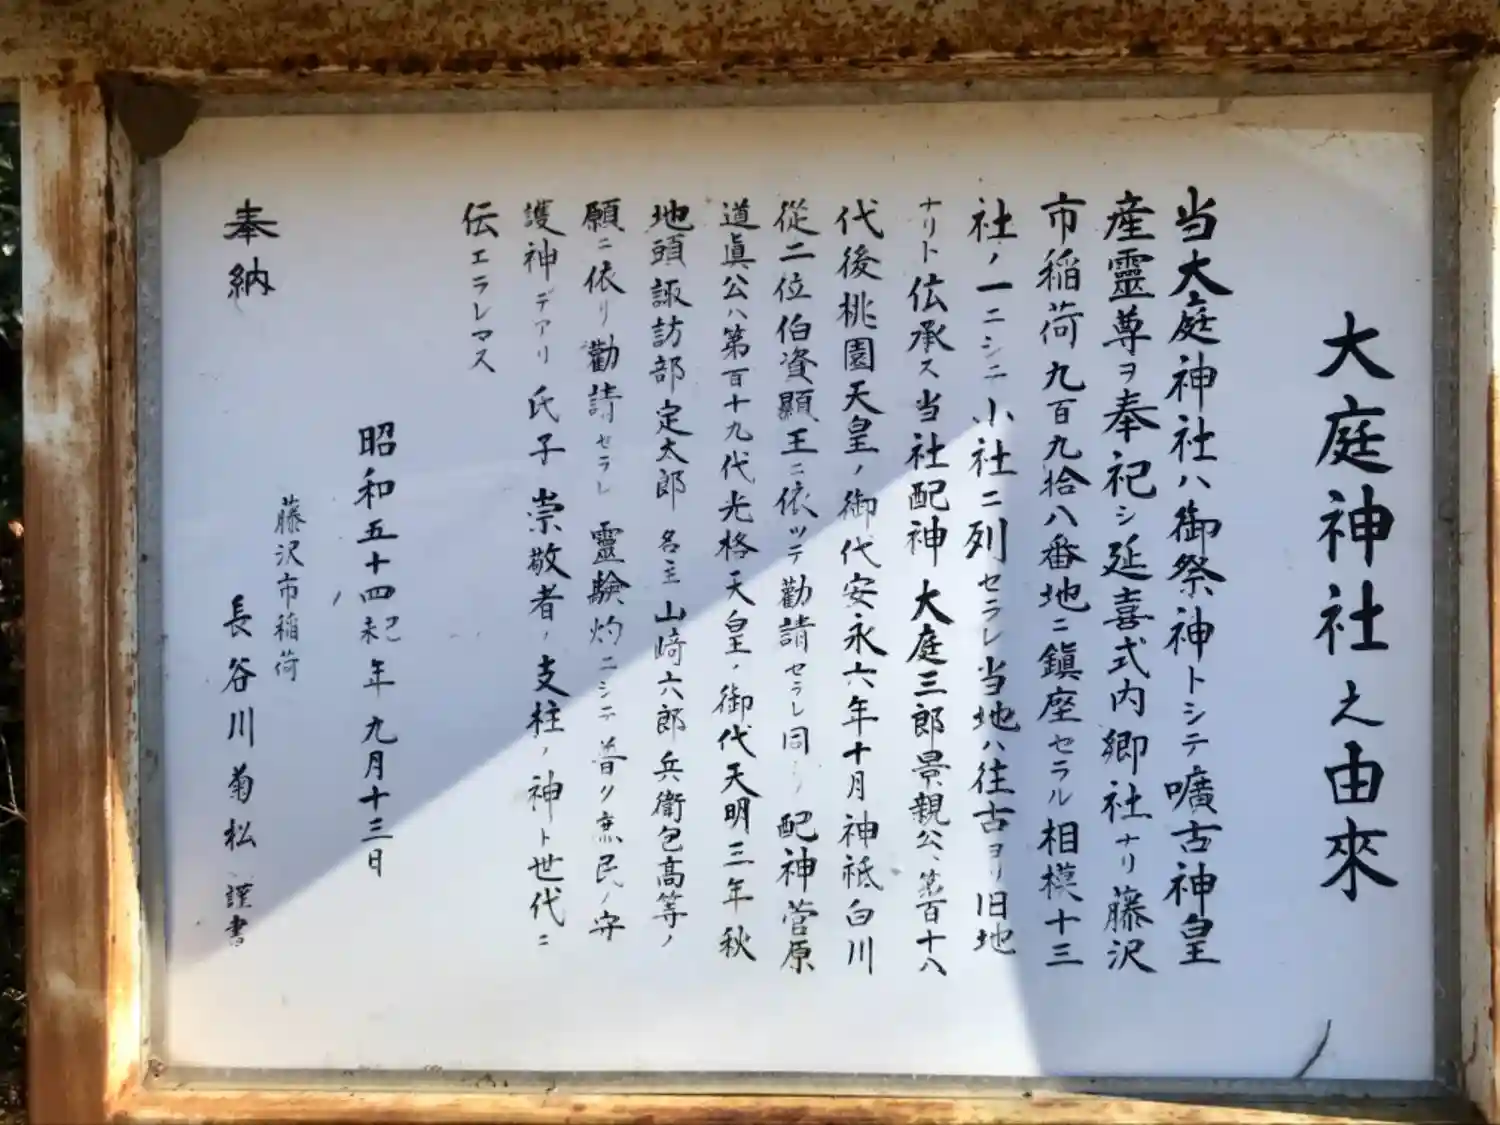 大庭神社之由來
当大庭神社ハ御祭神トシテ嚝古神皇
産靈尊ヲ奉祀シ延喜式内郷社ナリ藤沢
市稲荷九百九拾八番地ニ鎮座セラル相模十三
社ノ一ニシニ小社ニ列セラレ当地ハ往古ヨリ旧地
ナリト伝承ス当社配神大庭三郎景親公、第百十八
代後桃園天皇ノ御代安永六年十月神祗白川
從二位伯資顯王ニ依ッテ勸請セラレ同ジノ配神菅原
道眞公ハ第百十九代光格天皇ノ御代天明三年秋
地頭諏訪部定太郎名主山崎六郎兵衛包高等ノ
願ニ依リ勸請セラレ靈験灼ニシテ普ク庶民ノ守
護神デアリ氏子崇敬者ノ支柱ノ神ト世代ニ
伝エラレマス
昭和五十四祀未年九月十三日
藤沢市稲荷
長谷川菊松謹書
奉納